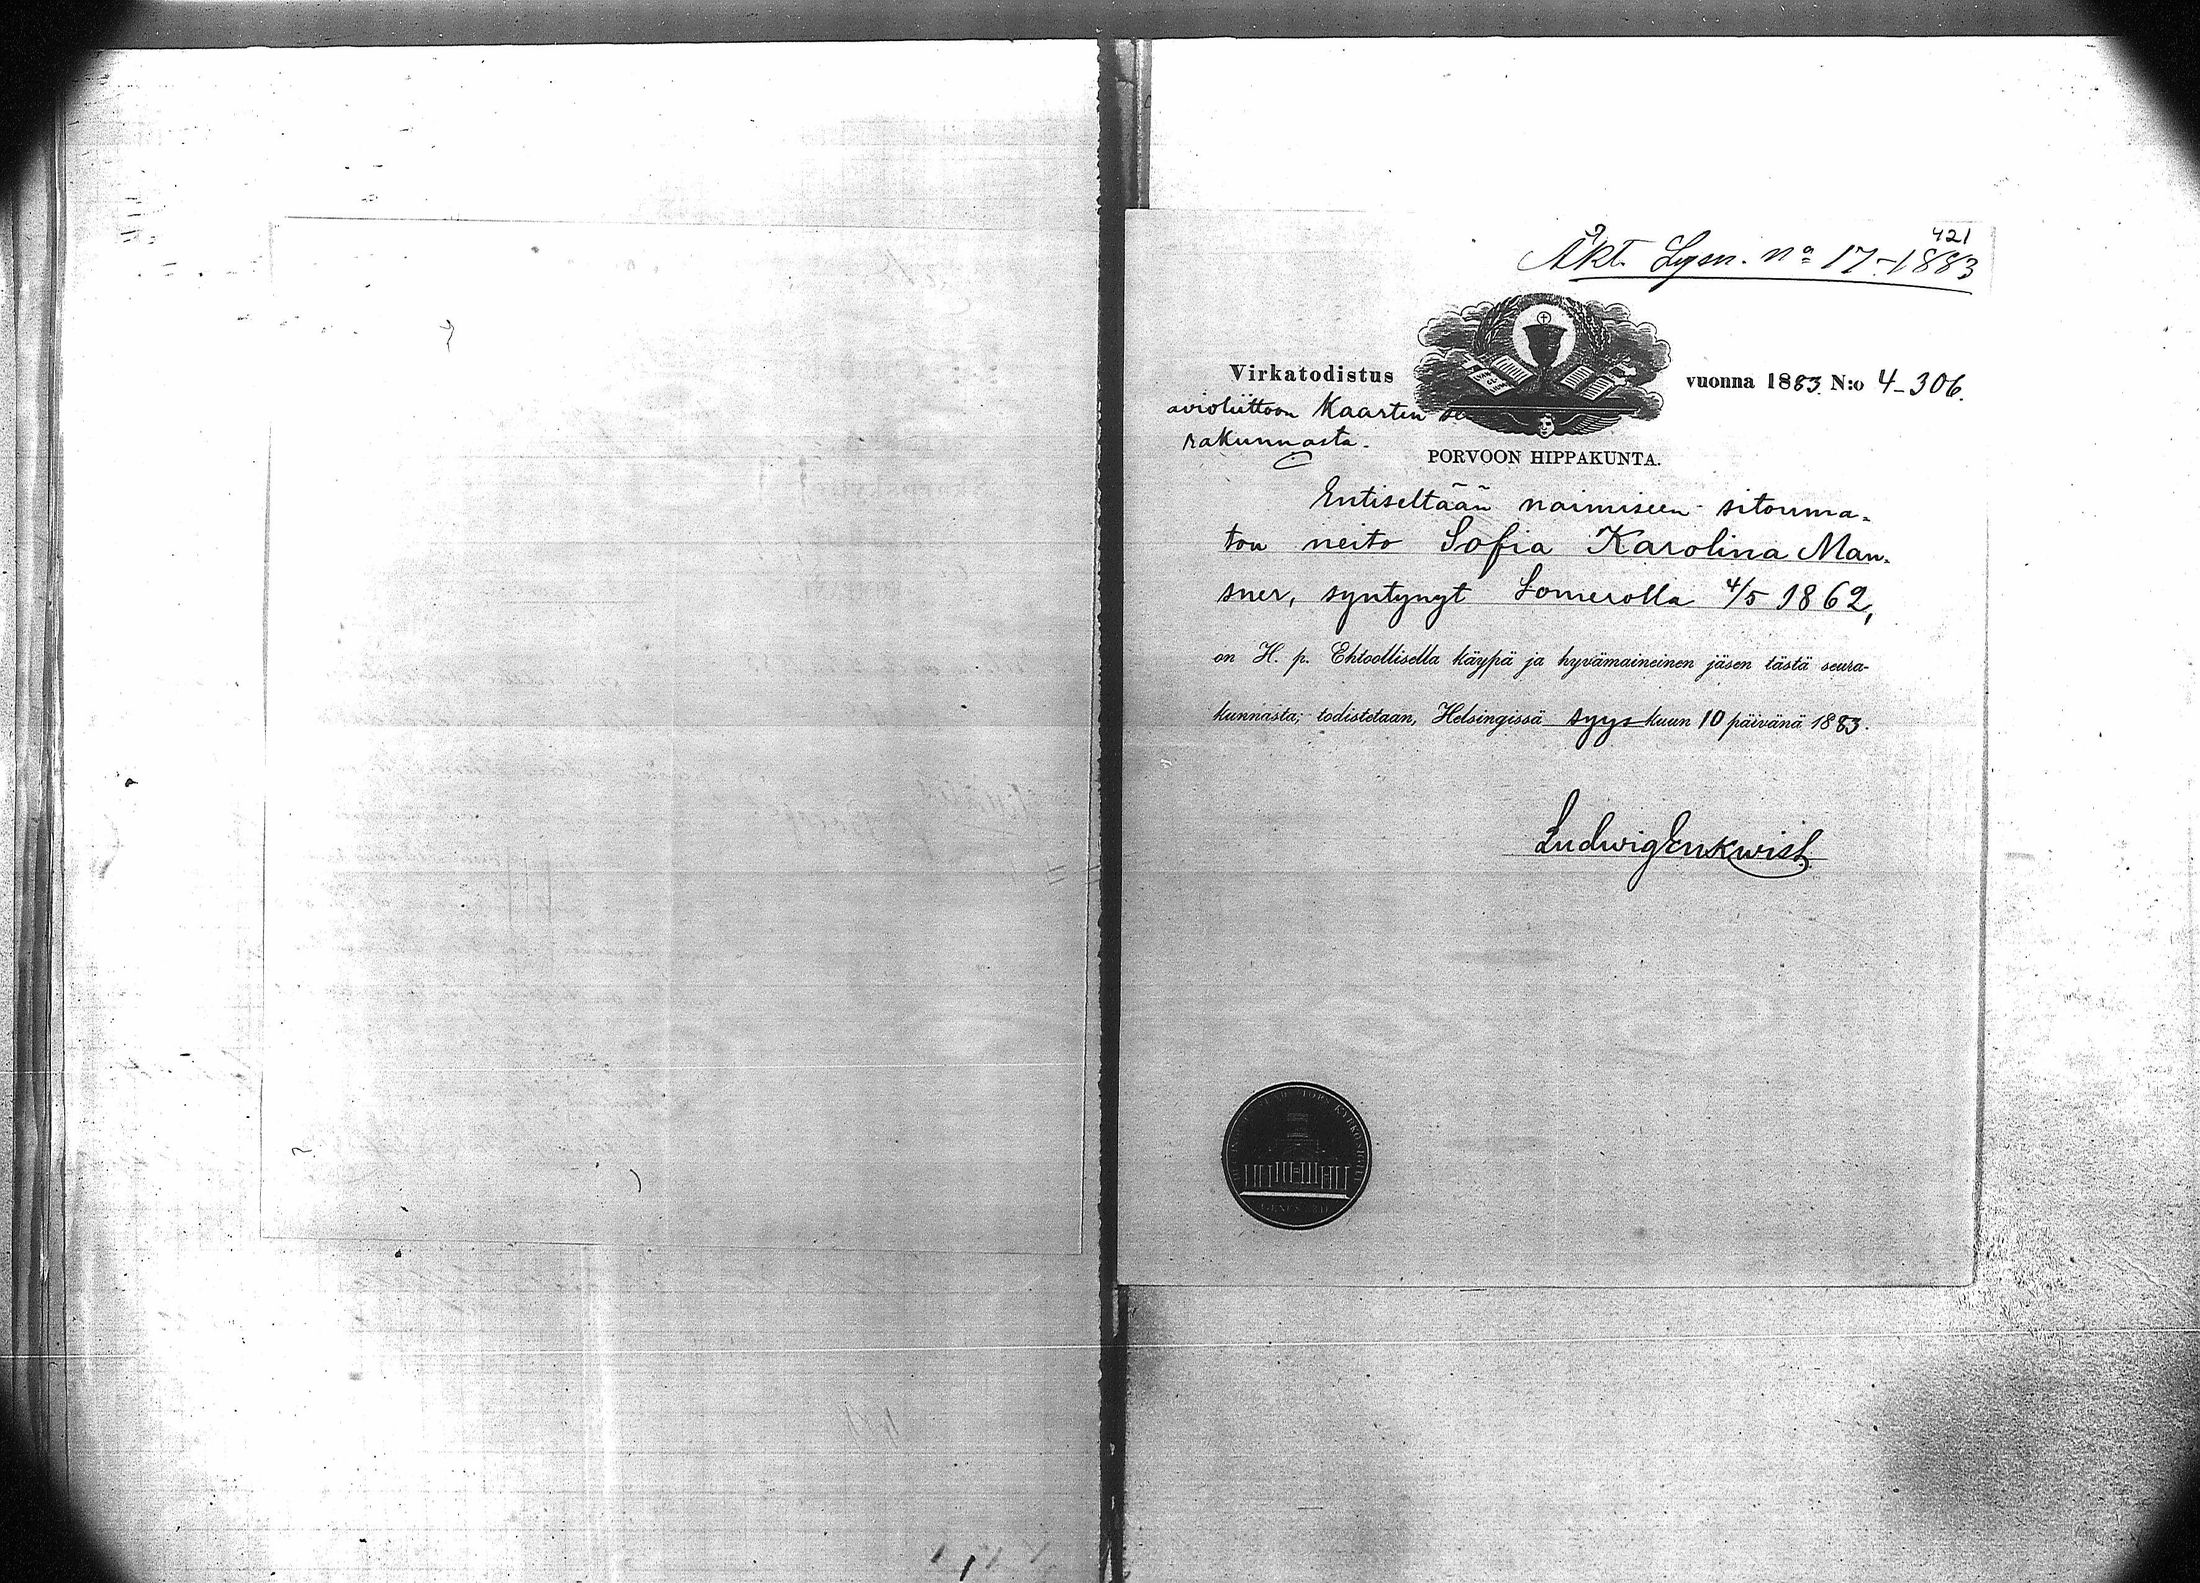 421
Äkt. Lysn. No 17-1883
Virkatodistus vuonna 1883. N:o 4-306.
avioliittoon Kaartin seu
rakunnasta.
PORVOON HIPPAKUNTA.
Entiseltään naimiseen sitouma-
ton neito Sofia Karolina Man-
sner, syntynyt Somerolla 4/5 1862,
on H. p. Ehtoollisella käypä ja hyvämaineinen jäsen tästä seura-
kunnasta; todistetaan, Helsingissä syys kuun 10 päivänä 1883.
Ludwig Enkwist.